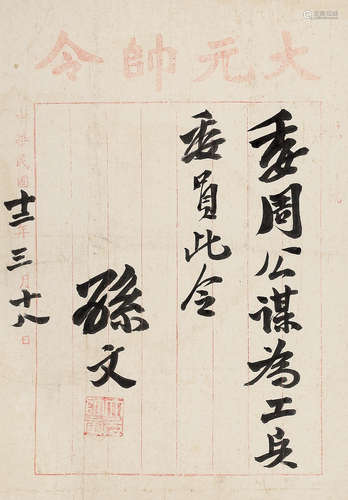 大元帥令
委周公謀為工兵
委員此令
孫文
中華民國十三年三月十八日